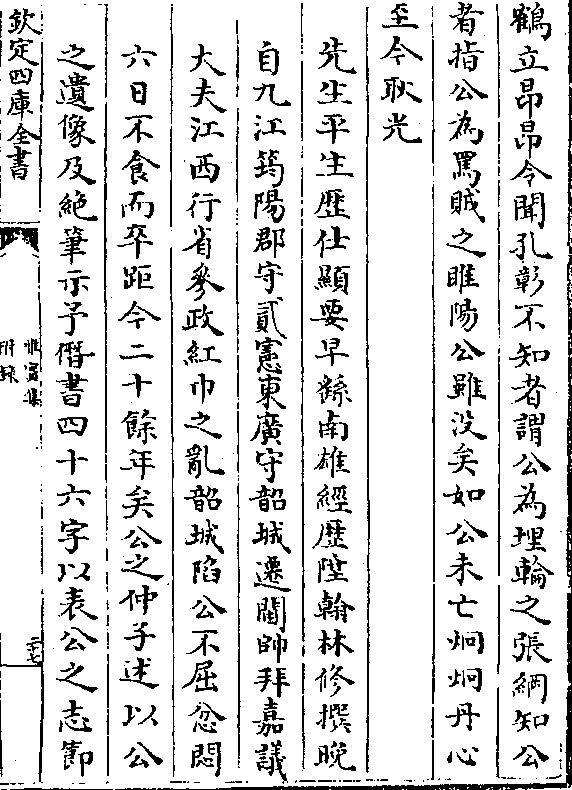 鶴立昂昂令聞孔彰不知者謂公為埋輪之張綱知公
者指公為罵賊之睢陽公雖没矣如公未亡炯炯丹心
至今耿光
先生平生歴仕顯要早繇南雄經歴陞翰林修撰晚
自九江筠陽郡守貳憲東廣守韶城遷閫帥拜嘉議
大夫江西行省參政紅巾之亂韶城陷公不屈忿悶
六日不食而卒距今二十餘年矣公之仲子述以公
之遺像及絶筆示予僭書四十六字以表公之志節
欽定四庫全書
惟實集
附録
二十七